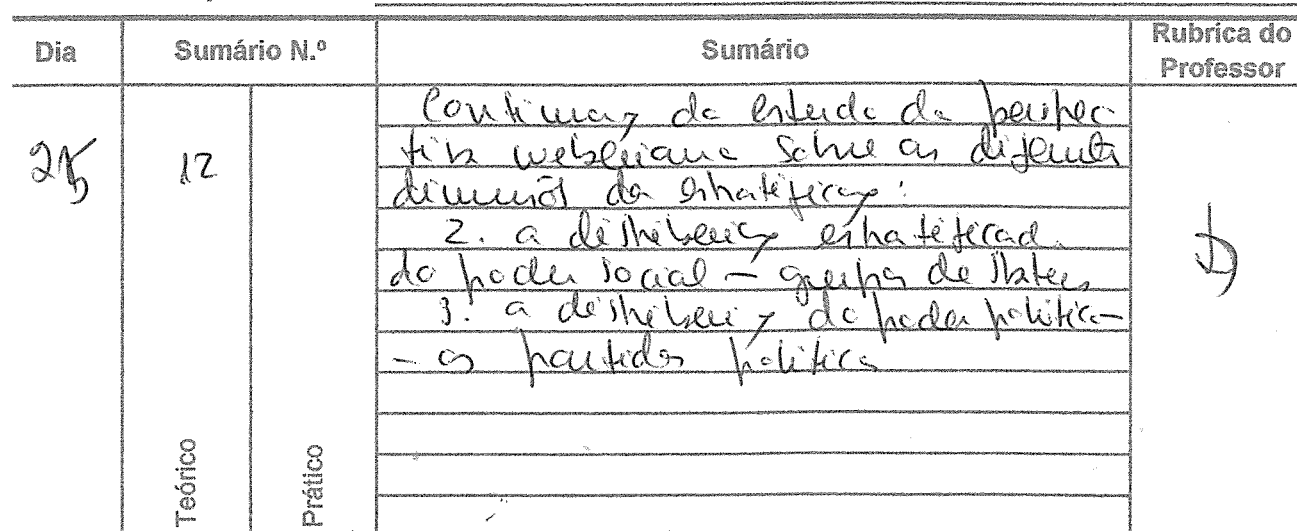 Dia Sumário N.º Sumário Rubrica do Professor
25 12
Continuaç do estudo da perspec
tiva weberiana sobre as diferentes
dimensões da estratificaç:
2. a distribuiç estratificada
do poder social – grupos de status
3. a distribuiç do poder político –
– os partidos políticos
Teórico Prático